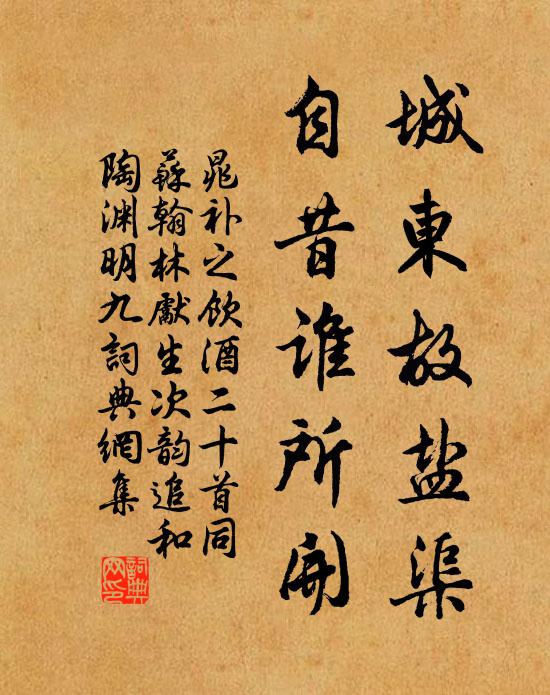 城東故盐渠
自昔谁所開
晁补之饮酒二十首同
蘇翰林獻生次韵追和
陶渊明九詞典網集
詞典
网印